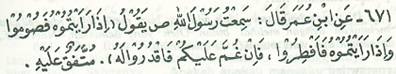 ٦٧١ - عَنِ ابْنِ عُمَرَ قَالَ : سَمِعْتُ رَسُوْلَ اللّٰهِ ص يَقُوْلُ (إِذَا رَاَيْتُمُوْهُ فَصُوْمُوْا
وَإِذَا رَاَيْتُمُوْهُ فَاَفْطِرُوْا ، فَاِنْ غُمَّ عَلَيْكُمْ فَاقْدُرُوْا لَهُ) . مُتَّفَقٌ عَلَيْهِ .